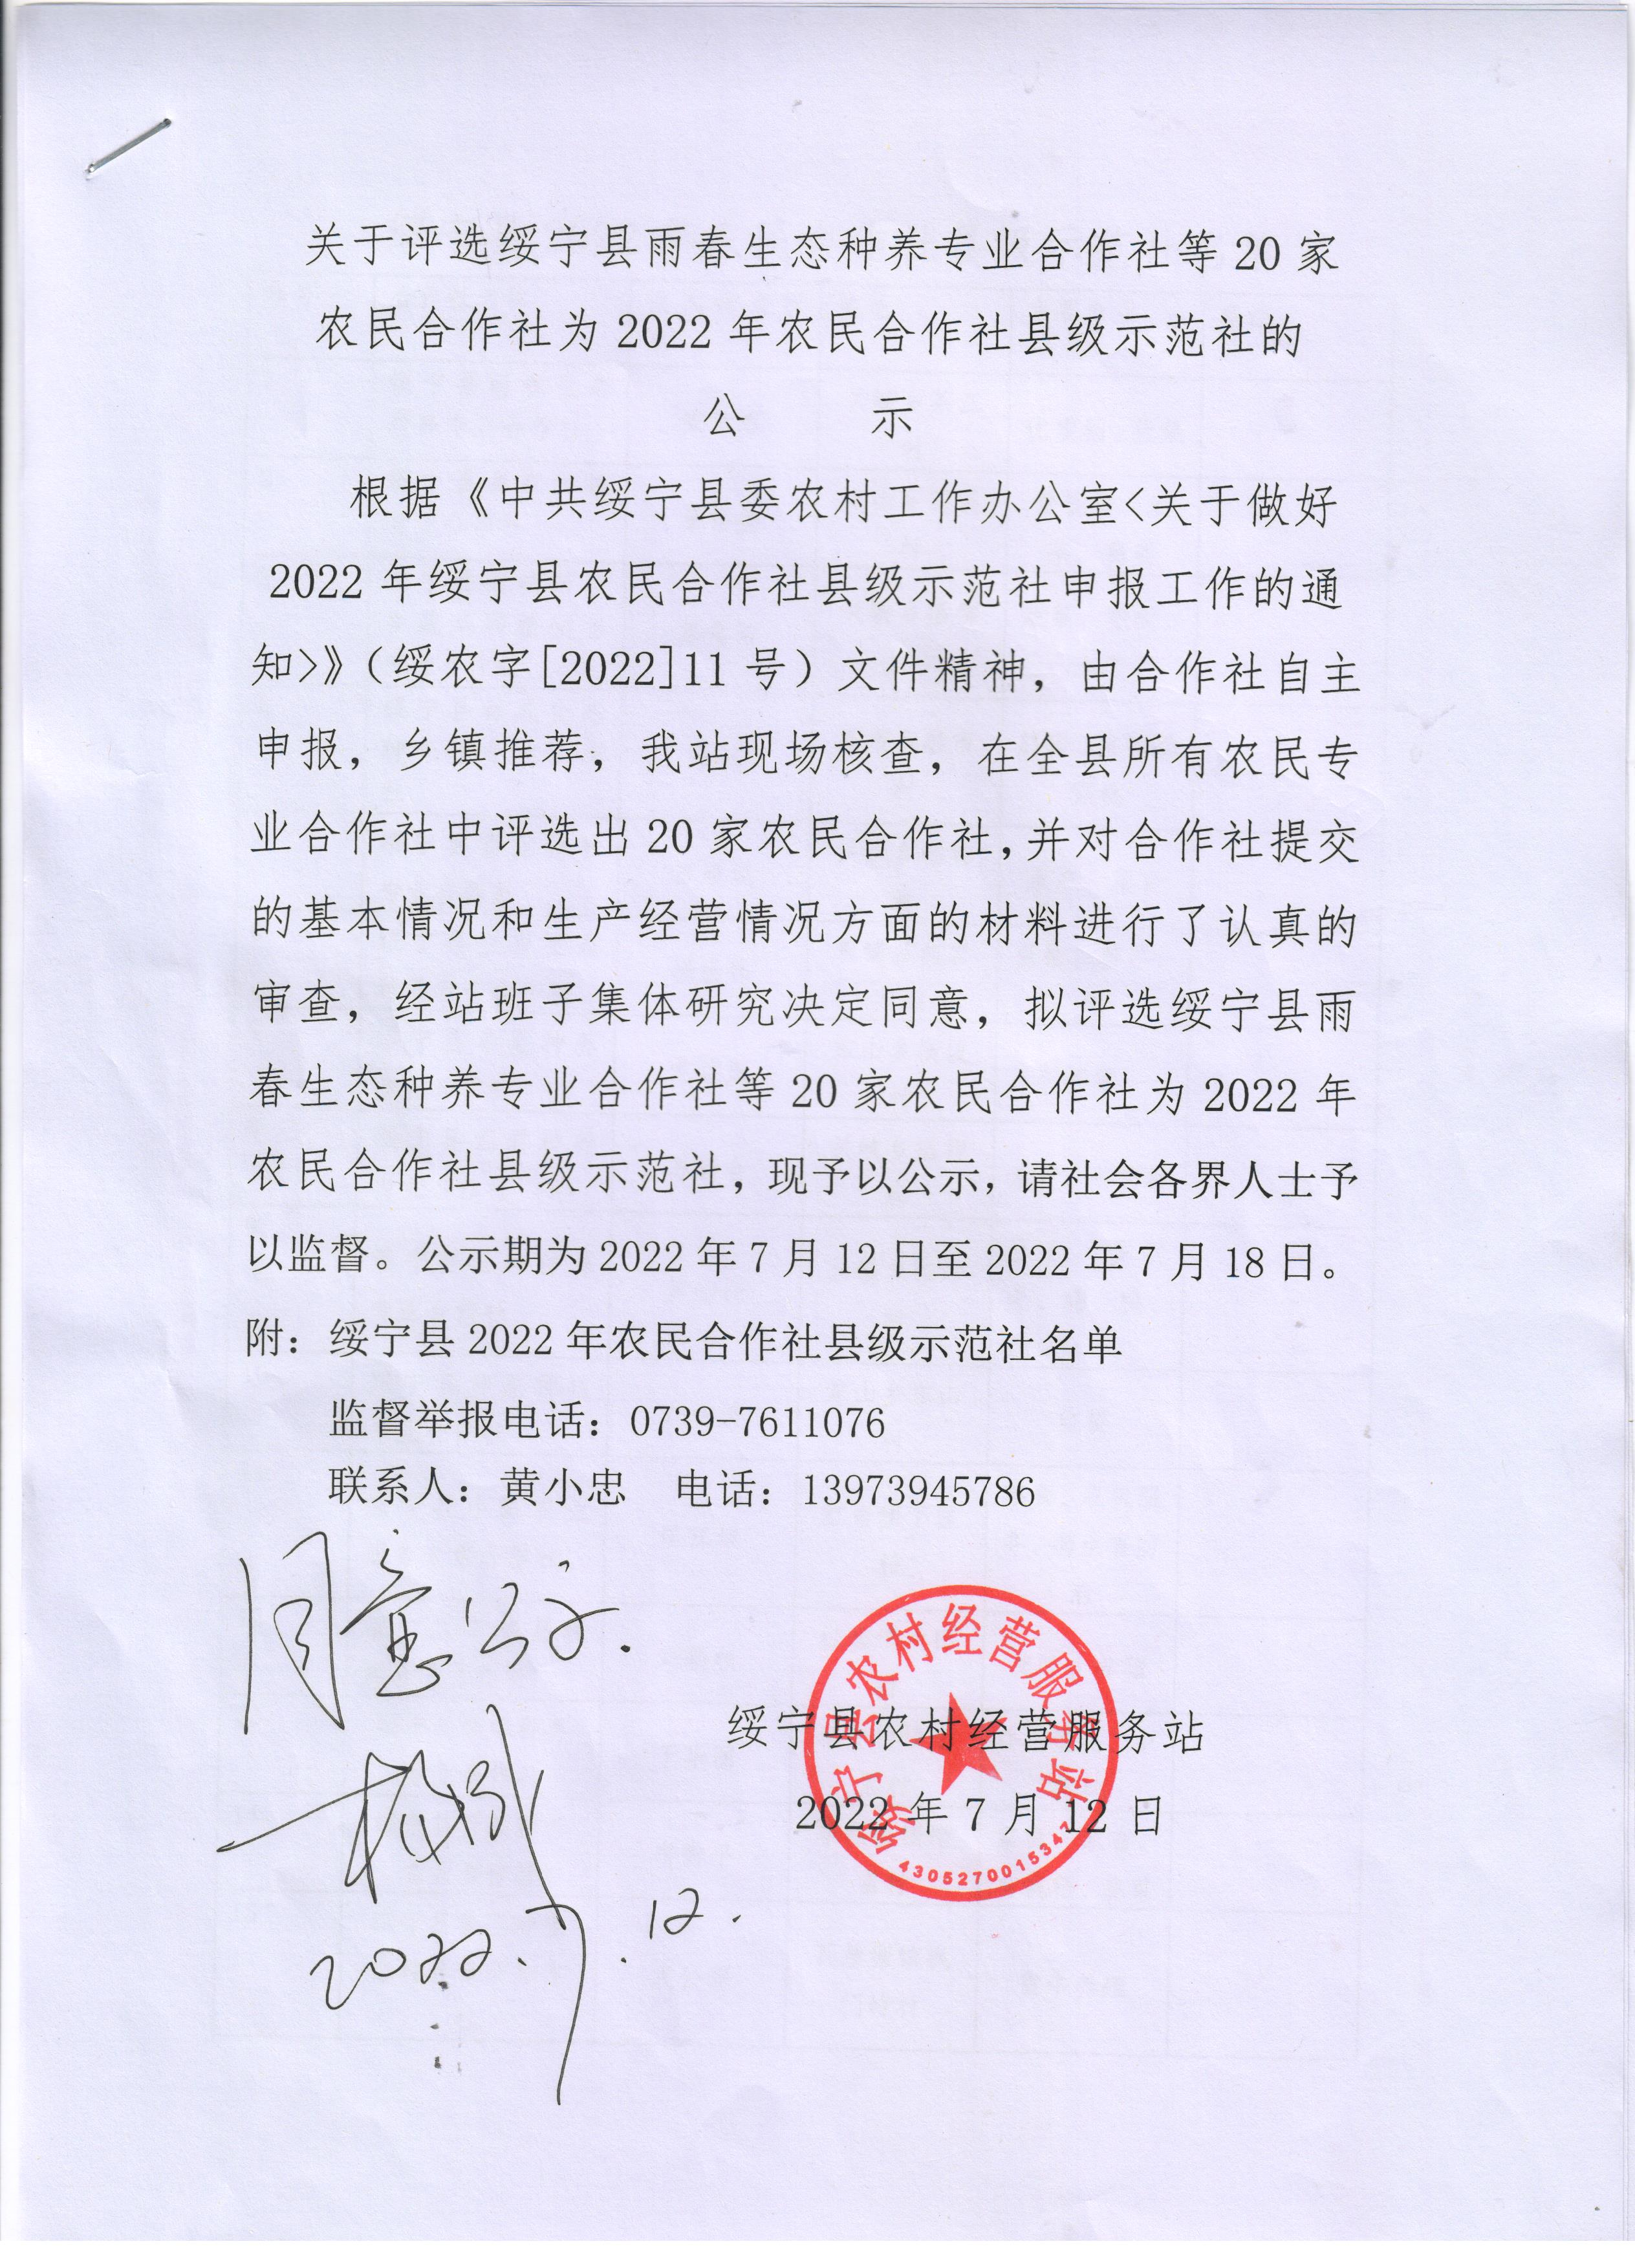 关于评选绥宁县雨春生态种养专业合作社等 20 家
农民合作社为 2022 年农民合作社县级示范社的
公 示
根据《中共绥宁县委农村工作办公室<关于做好
2022 年绥宁县农民合作社县级示范社申报工作的通
知>》（绥农字[2022]11 号）文件精神，由合作社自主
申报，乡镇推荐，我站现场核查，在全县所有农民专
业合作社中评选出 20 家农民合作社，并对合作社提交
的基本情况和生产经营情况方面的材料进行了认真的
审查，经站班子集体研究决定同意，拟评选绥宁县雨
春生态种养专业合作社等 20 家农民合作社为 2022 年
农民合作社县级示范社，现予以公示，请社会各界人士予
以监督。公示期为 2022 年 7 月 12 日至 2022 年 7 月 18 日。
附：绥宁县 2022 年农民合作社县级示范社名单
监督举报电话：0739-7611076
联系人：黄小忠 电话：13973945786
同意公示.
绥宁县农村经营服务站
2022 年 7 月 12 日
绥宁县农村经营服务站
4305270015347
2022.7.12.